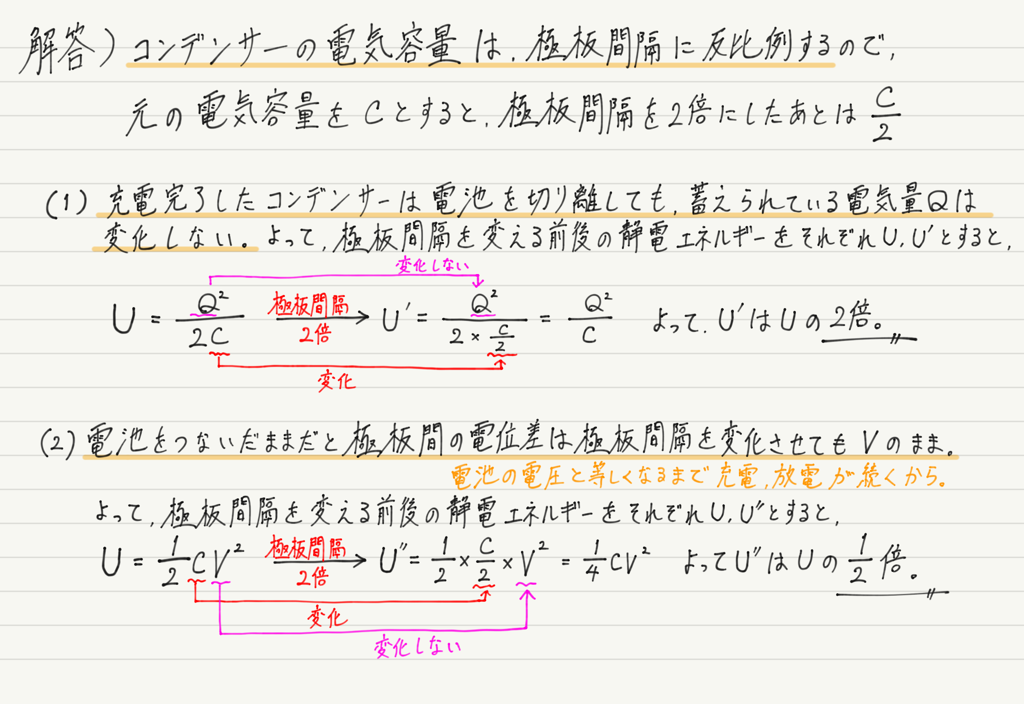 解答）コンデンサーの電気容量は，極板間隔に反比例するので，
元の電気容量をCとすると，極板間隔を2倍にしたあとは C/2
(1) 充電完了したコンデンサーは電池を切り離しても，蓄えられている電気量Qは
変化しない。よって，極板間隔を変える前後の静電エネルギーをそれぞれU，U'とすると，
変化しない
U = Q²/2C 極板間隔 2倍 → U' = Q²/(2 × C/2) = Q²/C よって，U'はUの2倍。
変化
(2) 電池をつないだままだと極板間の電位差は極板間隔を変化させてもVのまま。
電池の電圧と等しくなるまで充電，放電が続くから。
よって，極板間隔を変える前後の静電エネルギーをそれぞれU，U"とすると，
U = 1/2 CV² 極板間隔 2倍 → U" = 1/2 × C/2 × V² = 1/4 CV² よってU"はUの1/2倍。
変化
変化しない